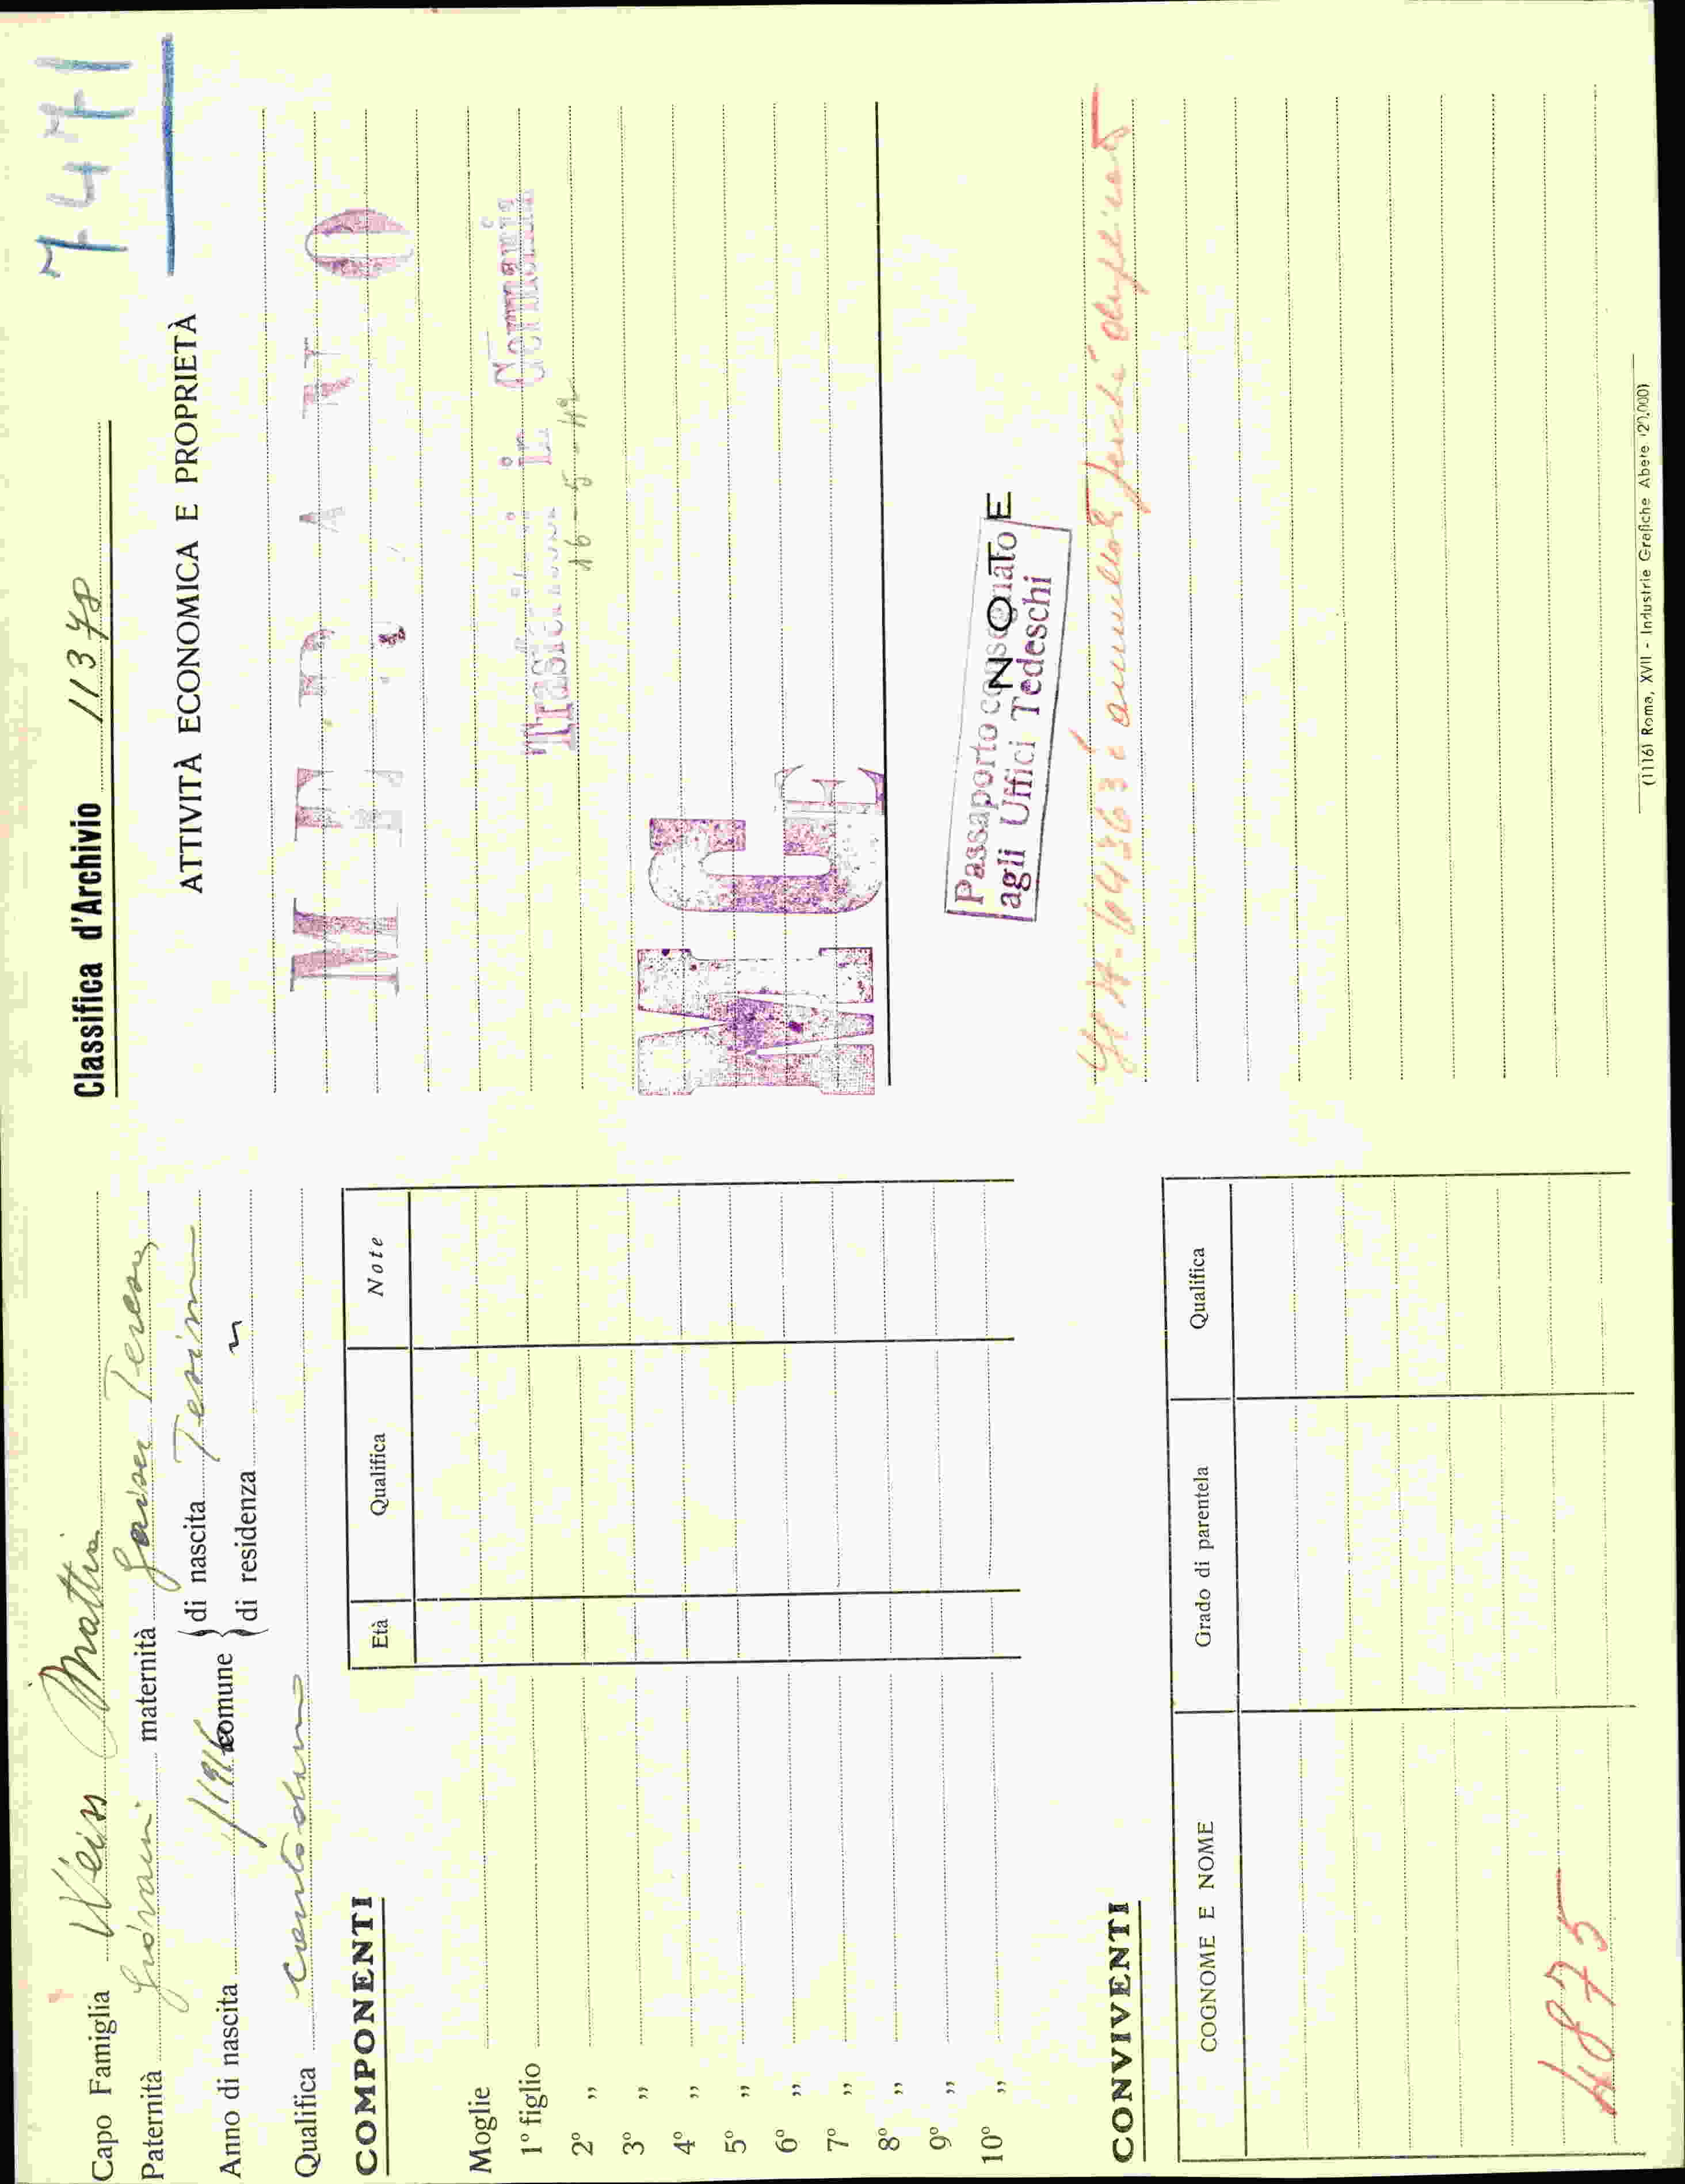 Capo Famiglia Weiss Mattia
Paternità Giovanni maternità Teresa
Anno di nascita 1916 comune di nascita
di residenza "
Qualifica contadino
COMPONENTI
Età Qualifica Note
Moglie
1º figlio
2º "
3º "
4º "
5º "
6º "
7º "
8º "
9º "
10º "
CONVIVENTI
COGNOME E NOME Grado di parentela Qualifica
4875
7471
Classifica d'Archivio 11378
ATTIVITÀ ECONOMICA E PROPRIETÀ
Trasferitosi in Germania
16-5-42
MCE
Passaporto consegnato
agli Uffici Tedeschi
NOE
è annullato perché duplicato
(1116) Roma, XVII - Industrie Grafiche Abete (20.000)